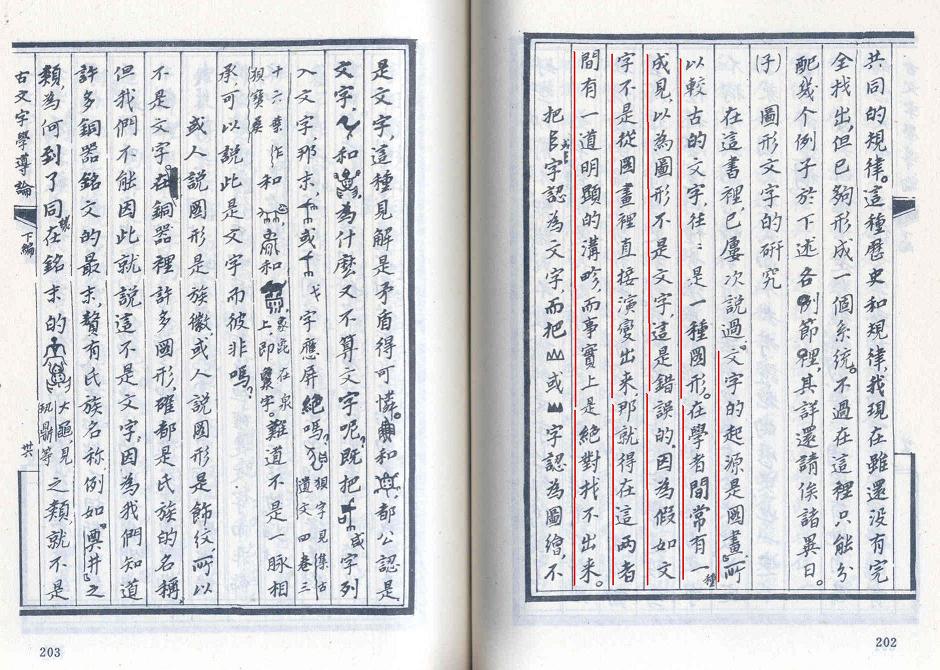 共同的規律。這種歷史和規律,我現在雖還没有完
全找出,但已夠形成一個系統。不過在這裡只能分
配幾个例子於下述各例節裡,其詳還請俟諸異日。
(子) 圖形文字的研究
在這書裡已屢次說過文字的起源是圖畫,所
以較古的文字,往:是一種圖形。在學者間常有一種
成見,以為圖形不是文字,這是錯誤的,因為假如文
字不是從圖畫裡直接演變出來,那就得在這兩者
間有一道明顯的溝畛,而事實上是絕對找不出來。
把 字認為文字,而把 或 字認為圖繪,不
202
是文字,這種見解是矛盾得可憐。 和 ,都公認是
文字, 和 ,為什麽又不算文字呢,既把 或 字列
入文字,那末, 或 戈字應屏絕嗎, 狽字見集古遺文四卷三
十六葉作 狽寶彝 和 和 象 在泉上,即 字。難道不是一脈相
承可以說此是文字而彼非嗎?
或人說圖形是族徽,或人說圖形是飾紋,所以
不是文字,在銅器裡許多圖形,確都是氏族的名稱,
但我們不能因此就說這不是文字,因為我們知道
許多銅器銘文的最末,贅有氏族名称,例如 之
類,為何到了同樣在銘末的 大黽,見 鼎等 之類,就不是
古文字學導論 下編 共
203